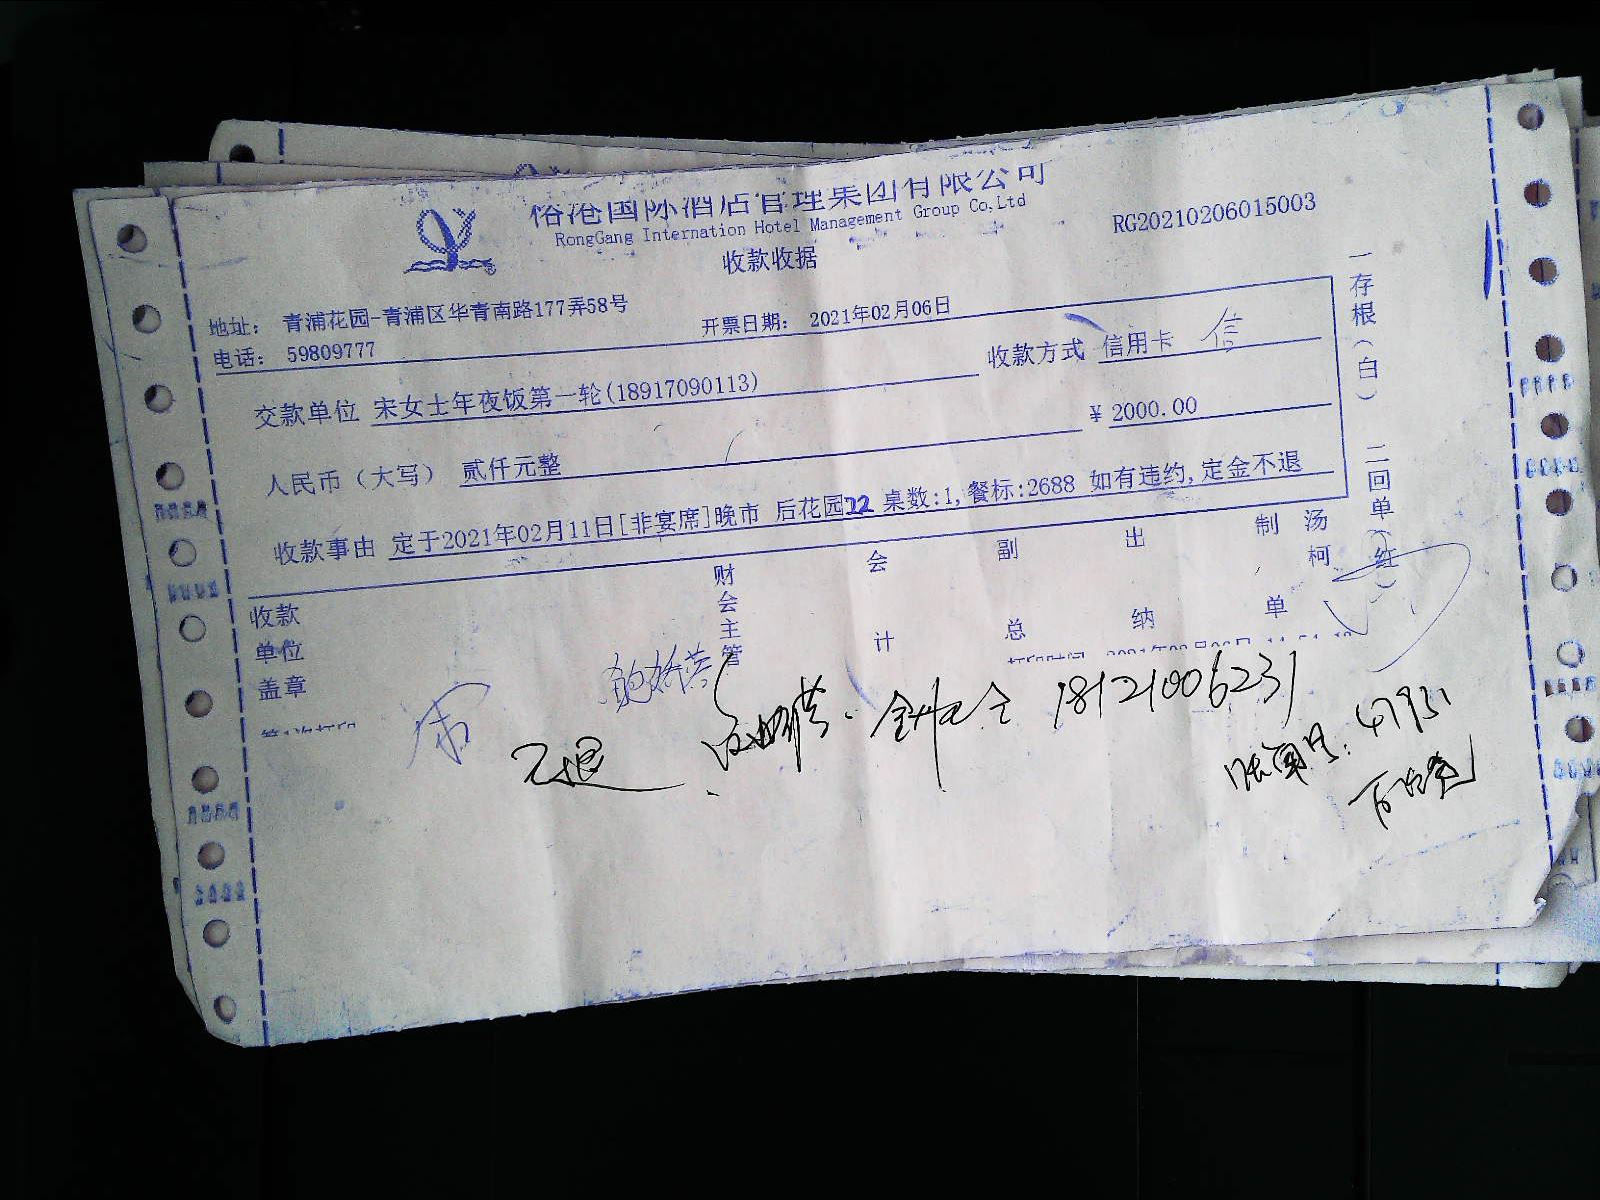 俗港国际酒店管理集团有限公司
RongGang Internation Hotel Management Group Co,Ltd
收款收据
RG20210206015003
地址: 青浦花园-青浦区华青南路177弄58号
电话: 59809777
开票日期: 2021年02月06日
交款单位 宋女士年夜饭第一轮(18917090113)
收款方式 信用卡 信
人民币（大写） 贰仟元整
¥ 2000.00
收款事由 定于2021年02月11日[非宴席]晚市 后花园 桌数:1,餐标:2688 如有违约,定金不退
一存根（白） 二回单（红）
收款单位盖章
财会主管
会计
副总
出纳
制单
汤柯
18121006231